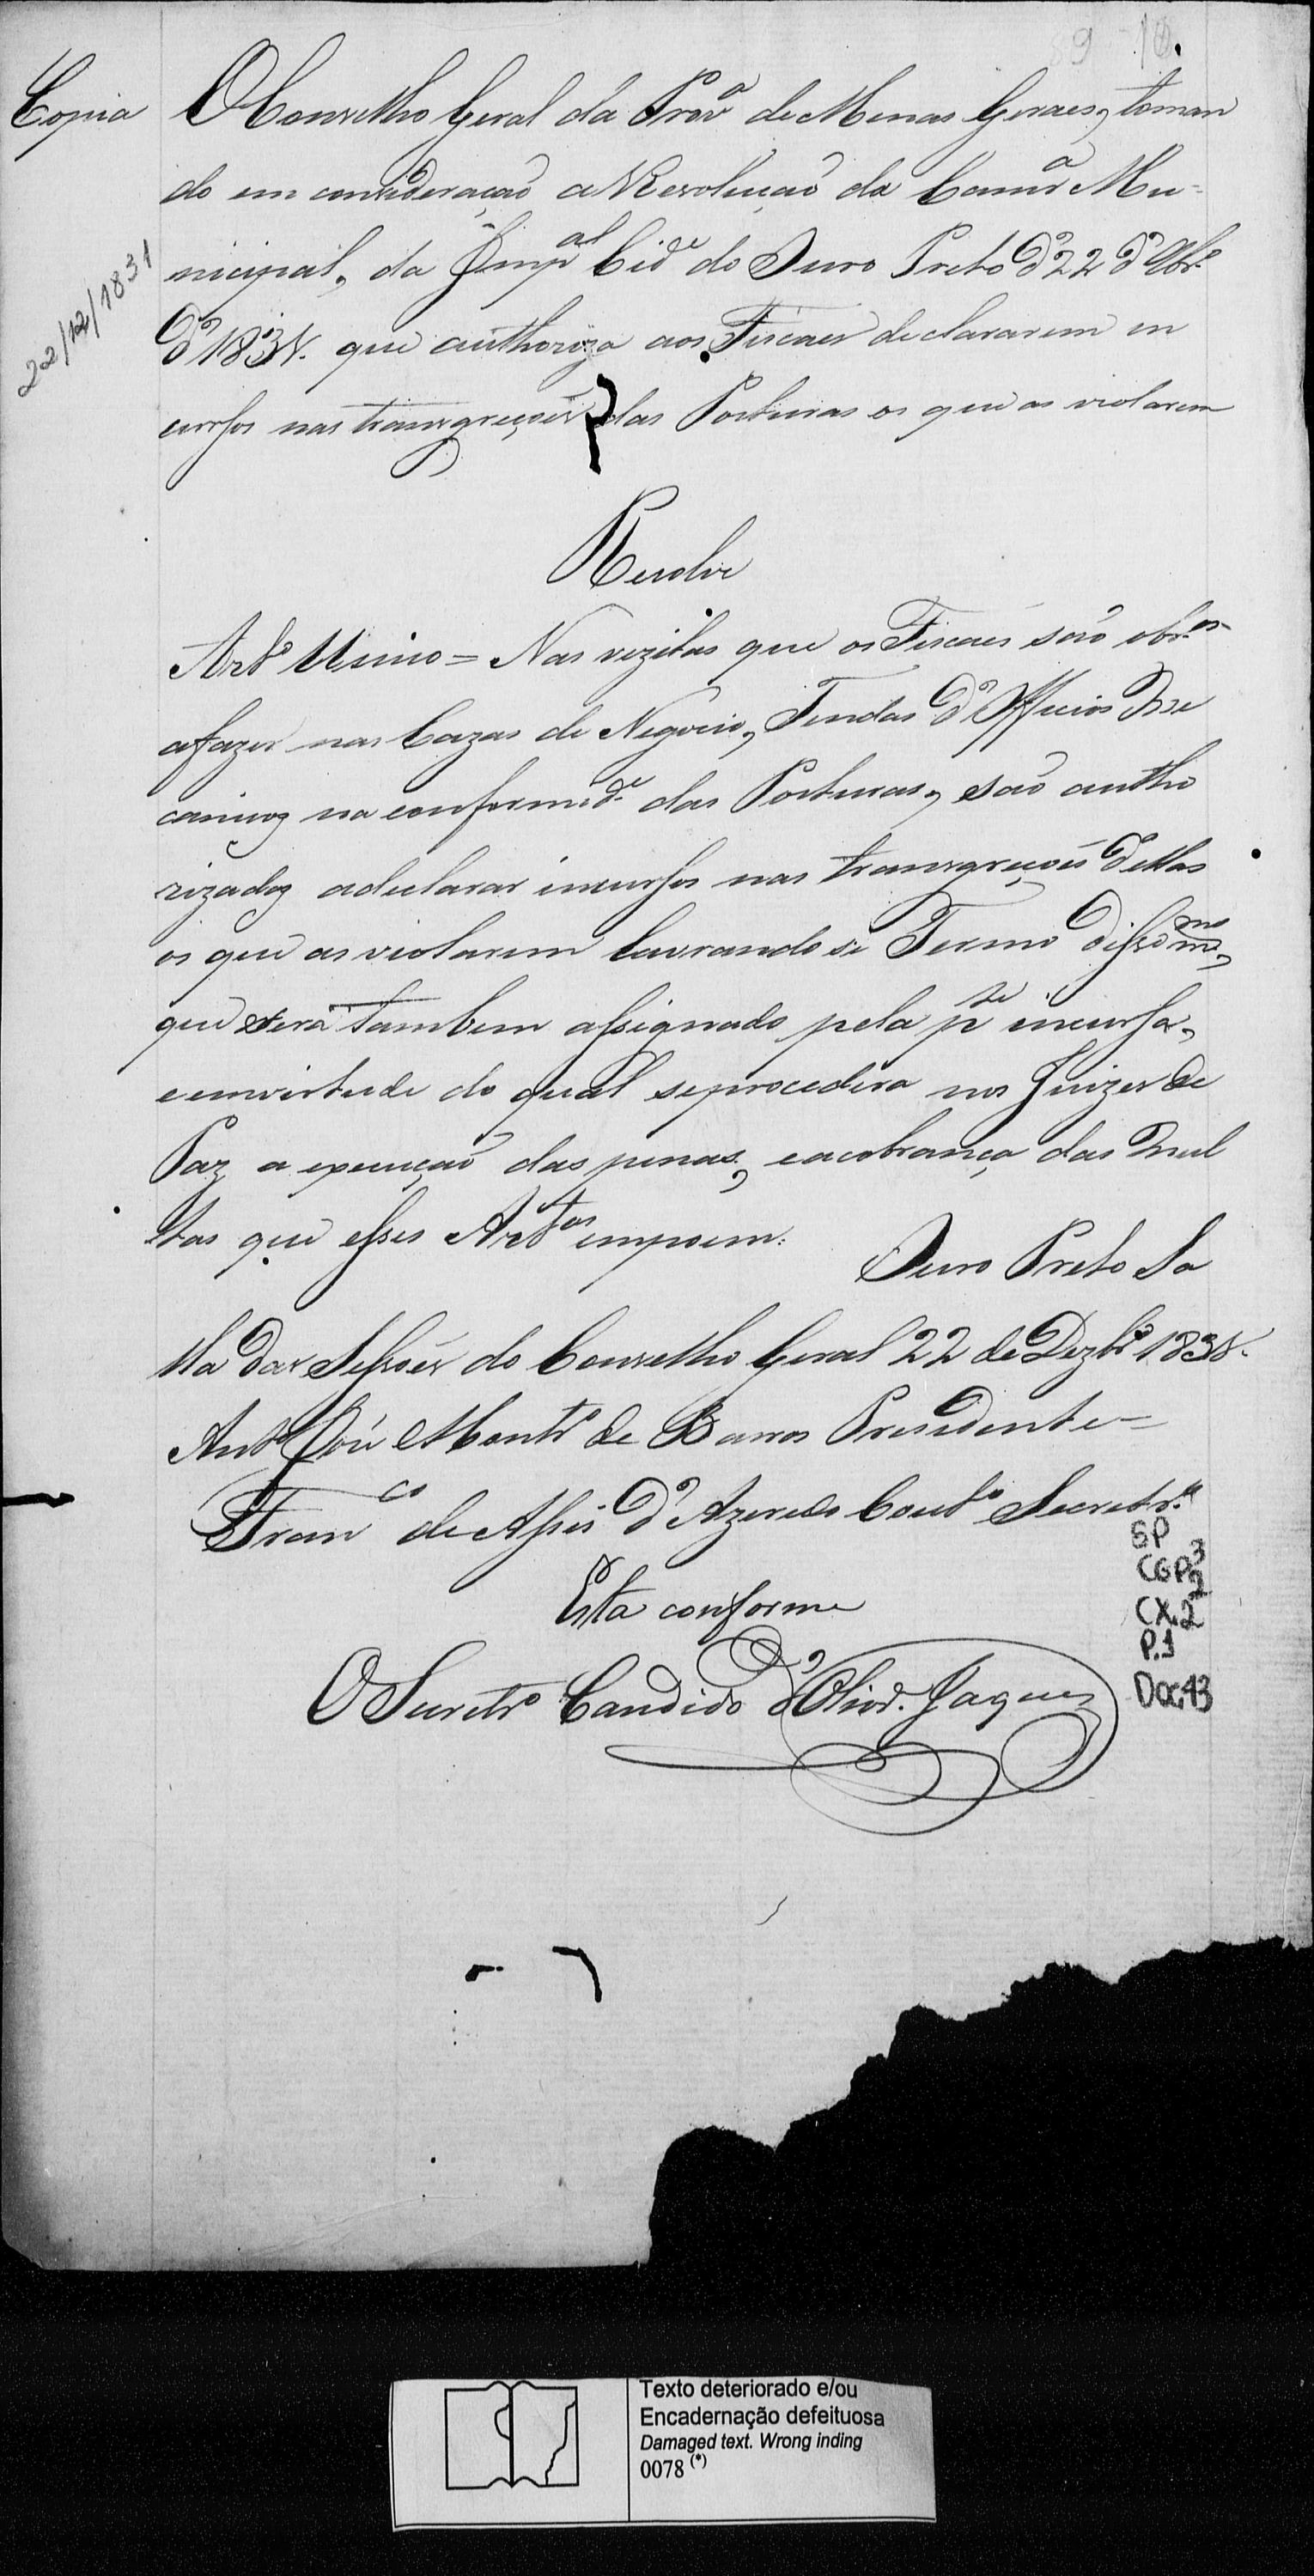 Copia
O Conselho Geral da Prov.ª de Minas Geraes, toman
do em consideração a Resolução da Camr.ª Mu-
nicipal, da Imp.al Cid.e do Ouro Preto d' 22 d' 9br.º
d' 1831. que authoriza aos Fiscaes declararem in
cursos nas transgreçoẽs das Posturas os que as violarem
22/12/1831
Resolve
Art.º Unico = Nas vezitas que os Fiscaes são obr.os
a fazer nas Cazas de Negocio, Tendas d' Officios Me
canicos na conformid.e das Posturas, são autho
rizados a declarar incursos nas transgreçoẽs d'ellas
os que as violarem lavrando se Termo disso m.mo,
que será tambem assignado pela p.te incursa,
e em virtude do qual se procederá nos Juizes de
Paz a execução das penas, e a cobrança das Mul
tas que esses Art.os impoem.
Ouro Preto Sa
lla das Sessoẽs do Conselho Geral 22 de Dezbr.º 1831.
Ant.º José Montr.º de Barros Presidente =
Fran.co de Assis d' Azeredo Cout.º Secretr.º
Está conforme
O Secretr.º Candido d' Olivr.ª Jaques
SP
CGP3
2
CX.2
P.1
Doc.13
Texto deteriorado e/ou
Encadernação defeituosa
Damaged text. Wrong inding
0078 (*)